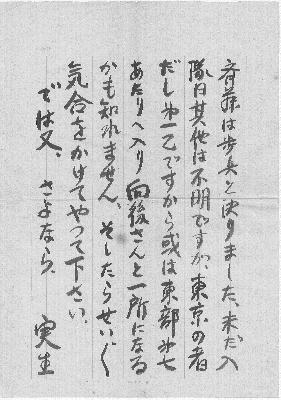 斉藤は歩兵と決りました、未だ入
隊日其他は不明ですが、東京の者
だし第一乙ですから或は東部第七
あたりへ入り向後さんと一所になる
かも知れません、そしたらせいぐ
気合をかけてやつて下さい、
では又、さよなら、
実生